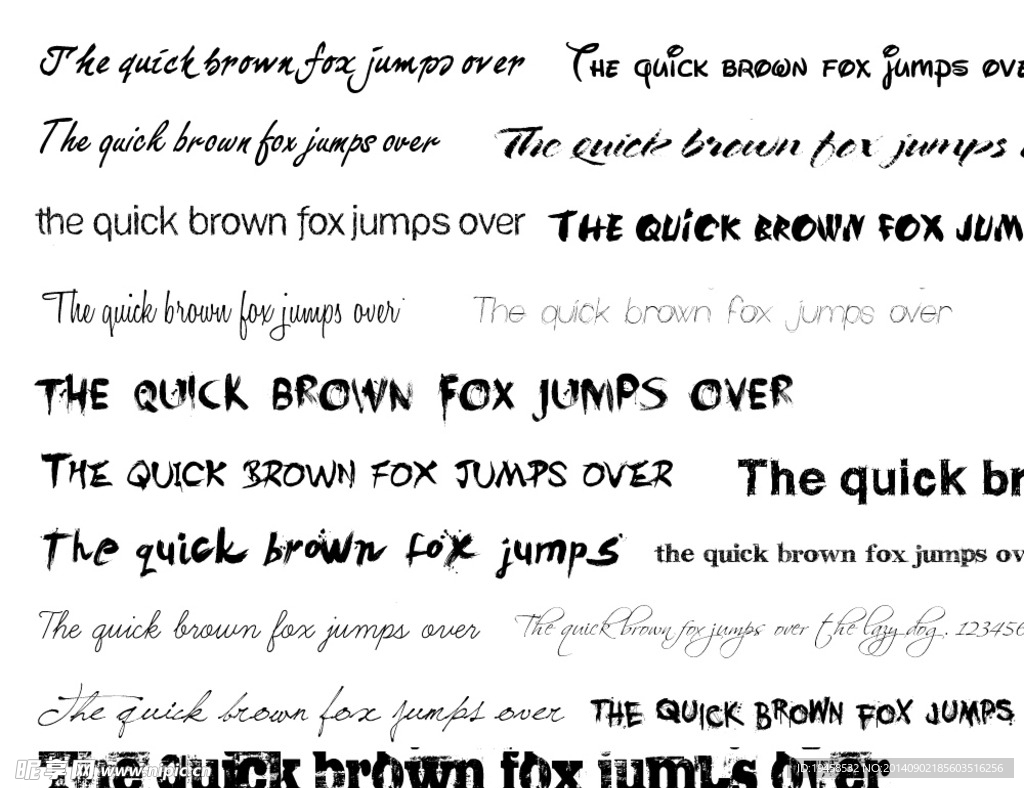 The quick brown fox jumps over The quick brown fox jumps ove
The quick brown fox jumps over The quick brown fox jumps
the quick brown fox jumps over THE QUICK BROWN FOX JUM
The quick brown fox jumps over The quick brown fox jumps over
THE QUICK BROWN FOX JUMPS OVER
THE QUICK BROWN FOX JUMPS OVER The quick br
The quick brown fox jumps the quick brown fox jumps ov
The quick brown fox jumps over The quick brown fox jumps over the lazy dog. 123456
The quick brown fox jumps over THE QUICK BROWN FOX JUMPS
The quick brown fox jumps over
昵享网 www.nipic.cn ID:19458532 NO:20140902185603516256